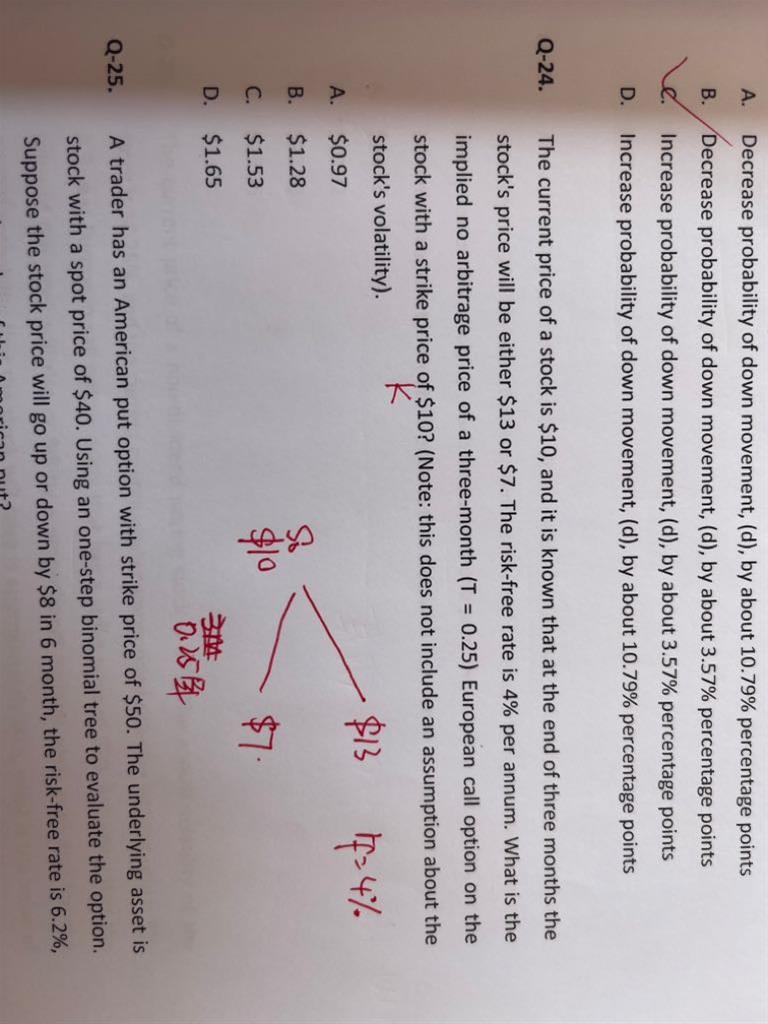 A. Decrease probability of down movement, (d), by about 10.79% percentage points
B. Decrease probability of down movement, (d), by about 3.57% percentage points
C. Increase probability of down movement, (d), by about 3.57% percentage points
D. Increase probability of down movement, (d), by about 10.79% percentage points
Q-24. The current price of a stock is $10, and it is known that at the end of three months the
stock's price will be either $13 or $7. The risk-free rate is 4% per annum. What is the
implied no arbitrage price of a three-month (T = 0.25) European call option on the
stock with a strike price of $10? (Note: this does not include an assumption about the
K
stock's volatility).
A. $0.97
B. $1.28
C. $1.53
D. $1.65
$13 rf=4%
S0
$10
$7.
0.25年
Q-25. A trader has an American put option with strike price of $50. The underlying asset is
stock with a spot price of $40. Using an one-step binomial tree to evaluate the option.
Suppose the stock price will go up or down by $8 in 6 month, the risk-free rate is 6.2%,
American put?